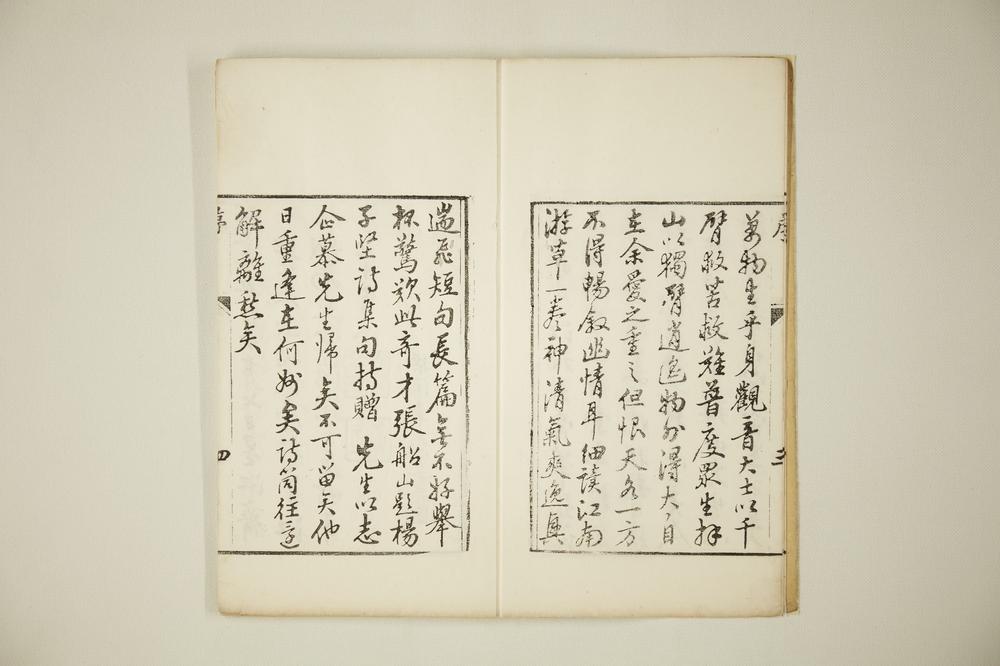 萬物生乎身觀音大士以千
臂救苦救難普度眾生拜
山以獨臂逍遙物外得大自
在余愛之重之但恨天各一方
不得暢敘幽情耳細讀江南
游草一卷神清氣爽逸興
遄飛短句長篇無不
杯驚歎此奇才張船山題楊
子堅詩集句持贈 先生以志
企慕先生歸矣不可留矣他
日重逢在何矣詩筒往還
解離愁矣
序
四